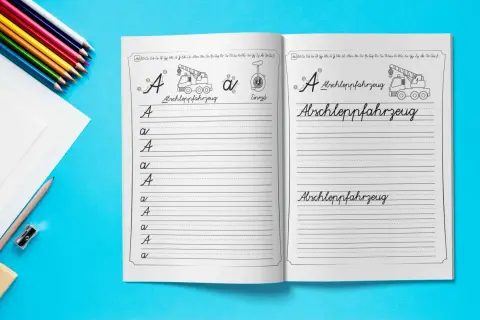 A a
Abschleppfahrzeug
A
a
A
a
A
a
A
a
A
a
A Abschleppfahrzeug
Abschleppfahrzeug
Abschleppfahrzeug